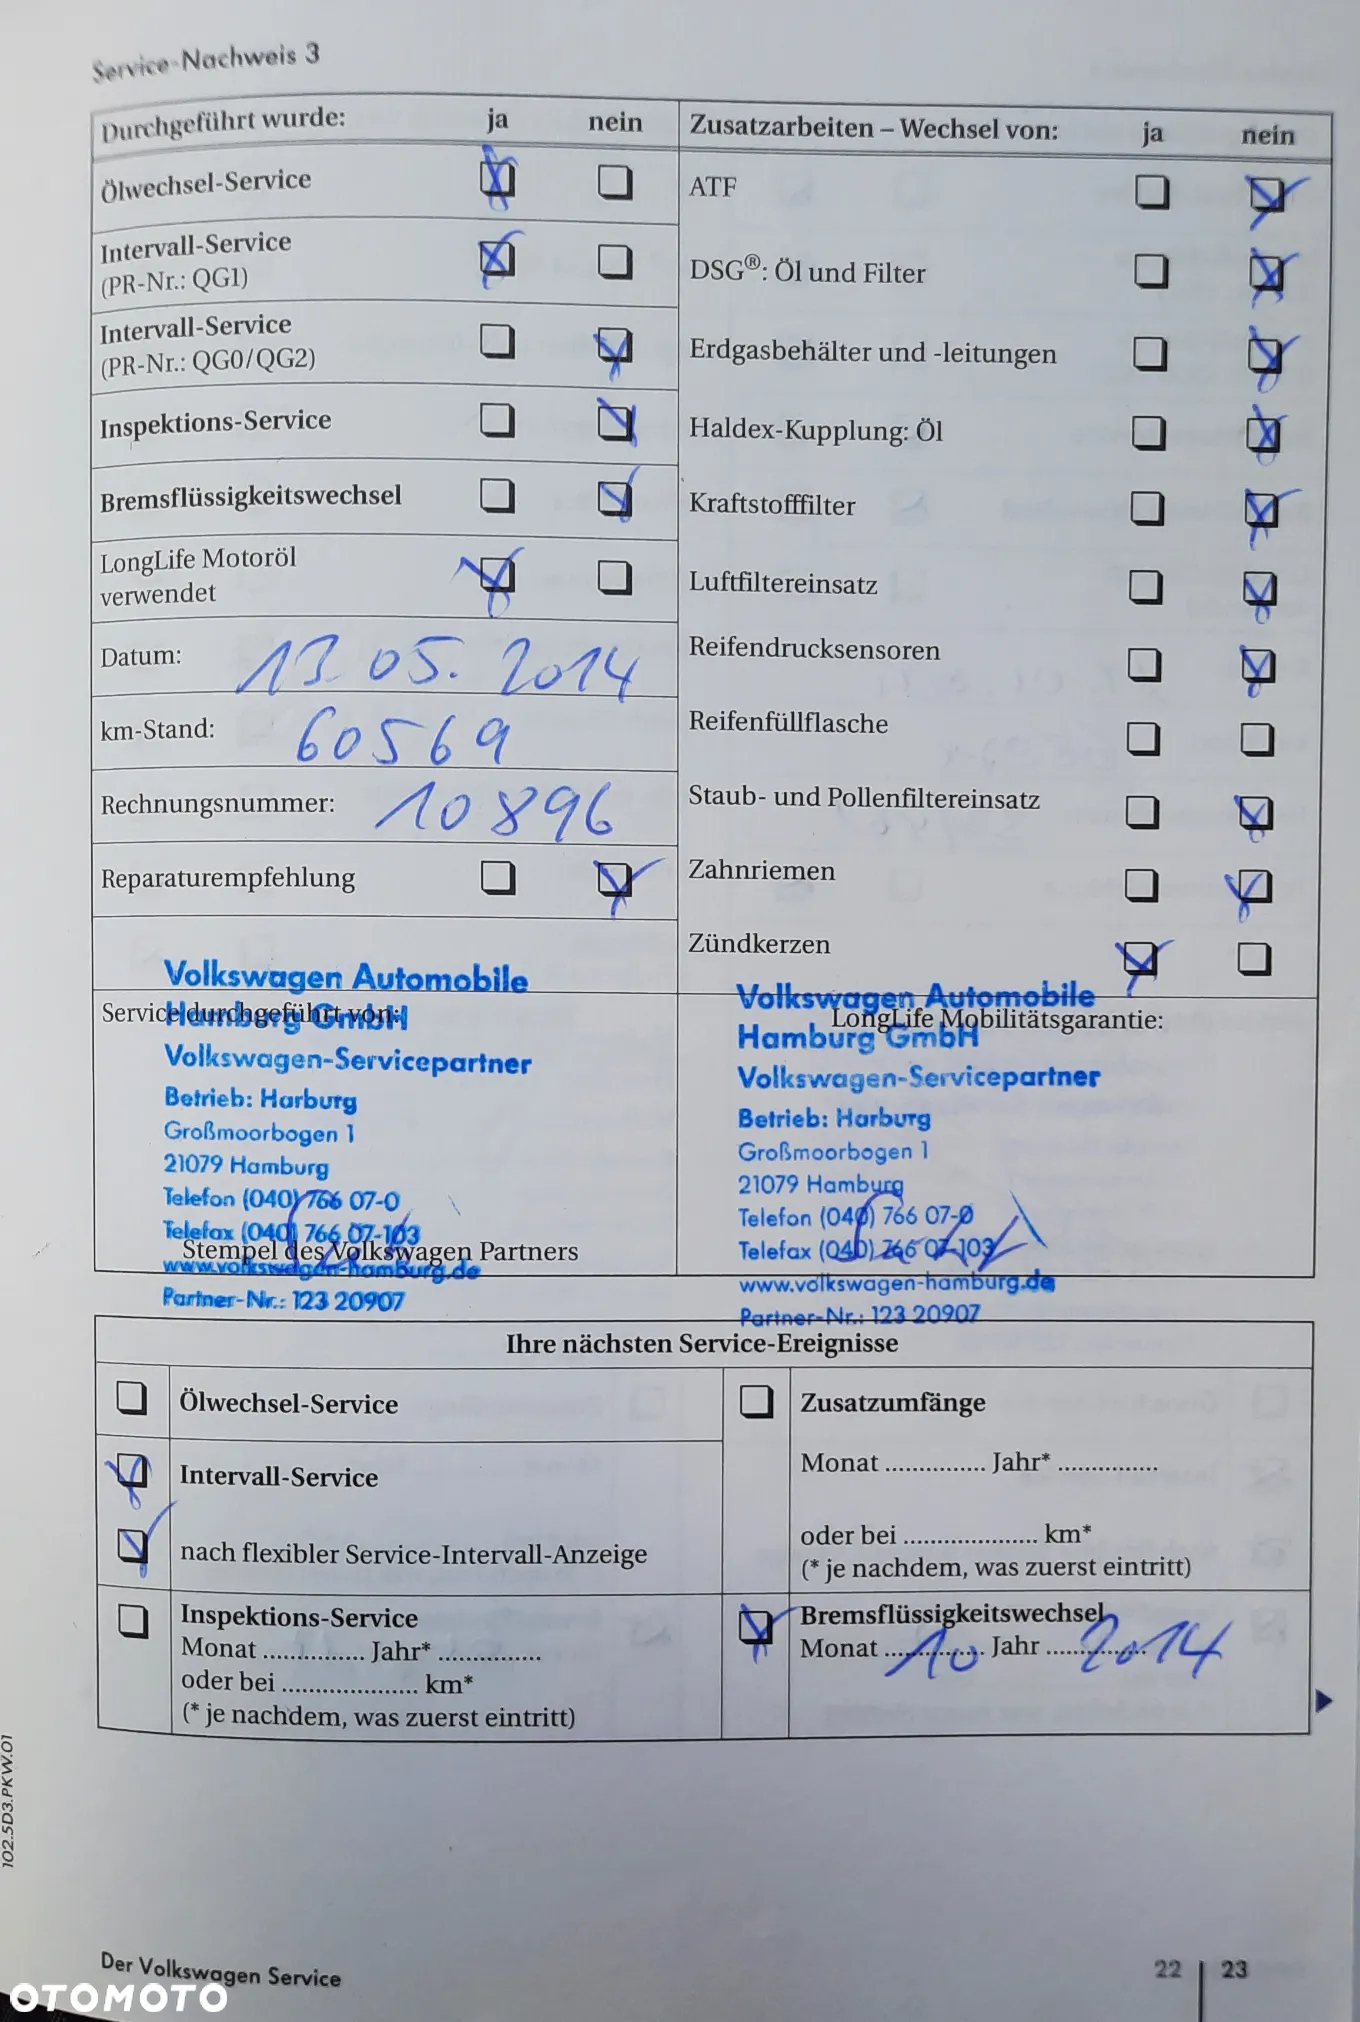 Service-Nachweis 3
Durchgeführt wurde: ja nein
Ölwechsel-Service
Intervall-Service
(PR-Nr.: QG1)
Intervall-Service
(PR-Nr.: QG0/QG2)
Inspektions-Service
Bremsflüssigkeitswechsel
LongLife Motoröl
verwendet
Datum: 13.05.2014
km-Stand: 60569
Rechnungsnummer: 10896
Reparaturempfehlung
Zusatzarbeiten – Wechsel von: ja nein
ATF
DSG®: Öl und Filter
Erdgasbehälter und -leitungen
Haldex-Kupplung: Öl
Kraftstofffilter
Luftfiltereinsatz
Reifendrucksensoren
Reifenfüllflasche
Staub- und Pollenfiltereinsatz
Zahnriemen
Zündkerzen
Service durchgeführt von:
Volkswagen Automobile
Hamburg GmbH
Volkswagen-Servicepartner
Betrieb: Harburg
Großmoorbogen 1
21079 Hamburg
Telefon (040) 766 07-0
Telefax (040) 766 07-103
www.volkswagen-hamburg.de
Partner-Nr.: 123 20907
Stempel des Volkswagen Partners
LongLife Mobilitätsgarantie:
Volkswagen Automobile
Hamburg GmbH
Volkswagen-Servicepartner
Betrieb: Harburg
Großmoorbogen 1
21079 Hamburg
Telefon (040) 766 07-0
Telefax (040) 766 07-103
www.volkswagen-hamburg.de
Partner-Nr.: 123 20907
Ihre nächsten Service-Ereignisse
Ölwechsel-Service
Intervall-Service
nach flexibler Service-Intervall-Anzeige
Inspektions-Service
Monat ............... Jahr* ...............
oder bei .................... km*
(* je nachdem, was zuerst eintritt)
Zusatzumfänge
Monat ............... Jahr* ...............
oder bei .................... km*
(* je nachdem, was zuerst eintritt)
Bremsflüssigkeitswechsel
Monat 10 Jahr 2014
102.5D3.PKW.01
Der Volkswagen Service
22 23
OTOMOTO